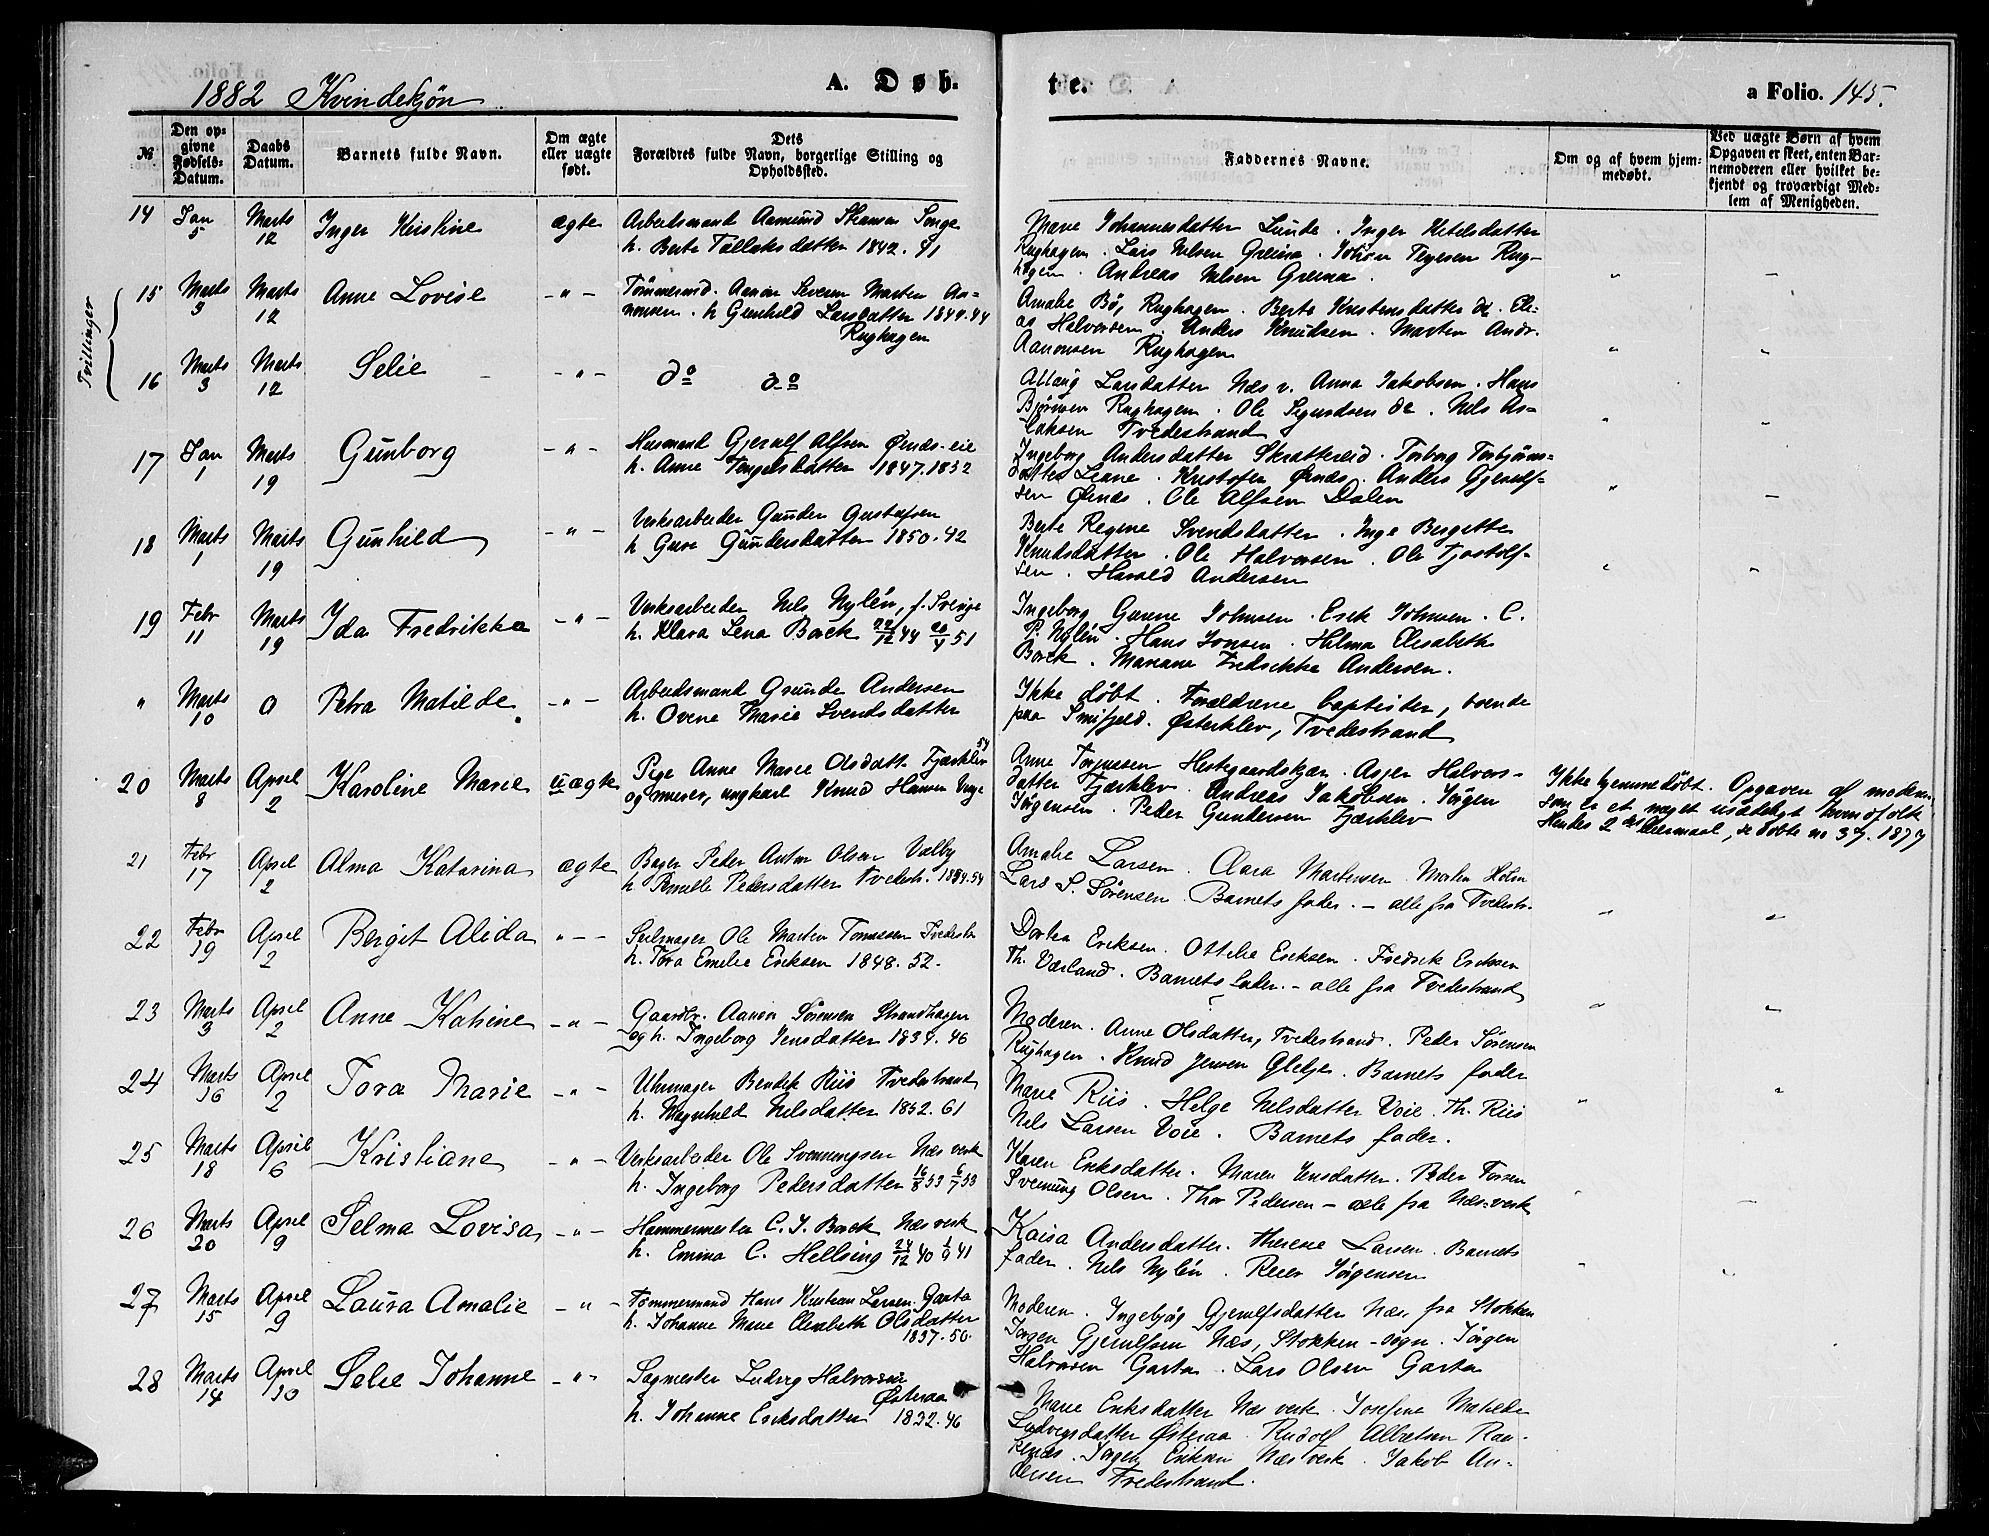 1882 Kvindekjøn
A. Døb-
te.
a Folio. 145.
№
Den op-
givne
Fødsels-
Datum.
Daabs
Datum.
Barnets fulde Navn.
Om ægte
eller uægte
født.
Dets
Forældres fulde Navn, borgerlige Stilling og
Opholdssted.
Faddernes Navne.
Om og af hvem hjem-
medøbt.
Ved uægte Børn af hvem
Opgaven er skeet, enten Bar-
nemoderen eller hvilket be-
kjendt og troværdigt Med-
lem af Menigheden.
14 Jan 5 Marts 12 Inger Kirstine ægte Arbeidsmand Aamund Songe
h. Berte Tallaksdatter 1842. 41
Marie Johannesdatter Lunde. Inger Ketilsdatter
Rughagen. Lars Nilsen Greina. Rug-
hagen. Andreas Nilsen Greina.
Tvillinger
15 Marts 3 Marts 12 Anne Lovise - " - Tømmermd. Aanon Severin Martin Aa-
nonsen. h Gunhild Larsdatter 1844. 44
Rughagen
Amalie Bø, Rughagen. Berte Kristensdatter do. Eli-
as Halvorsen. Anders Knudsen. Martin Andr.
Aanonsen Rughagen
16 Marts 3 Marts 12 Selie - " - do do
Aslaug Larsdatter Næs v. Anna Jakobsen. Hans
Bjørnsen Rughagen. Ole Sigurdsen do. Nils As-
laksen Tvedestrand
17 Jan 1 Marts 19 Gunborg - " - Husmand Gjerulf Alfsen Ørnds-eie
h. Anne Tengelsdatter 1847. 1832
Ingeborg Andersdatter Skratteræid. Torborg Torbjørns-
datter Leane. Kristofer Ørnæs. Anders Gjerulf-
sen Ørnæs. Ole Alfsen Dalen
18 Marts 1 Marts 19 Gunhild - " - Verksarbeider Gunder Gustafsen
h Gure Gundersdatter 1850. 42
Berte Regine Svendsdatter. Inge Bergitte
Knudsdatter. Ole Halvorsen. Ole Fjostolf-
sen. Harald Andersen
19 Febr 11 Marts 19 Ida Fredrikke - " - Verksarbeider Nils Nylén, f. Sverige
h. Klara Lena Borek 22/12 44 20/4 51
Ingeborg Gurine Johnsen. Erik Johnsen. C.
P. Nylén. Hans Jonsen. Hilma Elisabeth
Borek. Mariane Fredrikke Andersen.
" Marts 10 0 Petra Matilde - " - Arbeidsmand Grunde Andersen
h. Ovene Marie Svendsdatter
Ikke døbt. Forældrene baptister, boende
paa Smifjeld. Østerklev, Tvedestrand
20 Marts 8 April 2 Karoline Marie uægte Pige Anne Marie Olsdatt. Fjærklev 54
og murer, ungkarl Knud Hansen
Anne Tørjussen Hestgaardskjær. Asjer Halvors-
datter Fjærklev. Andreas Jakobsen. Jørgen
Jørgensen. Peder Gundersen Fjærklev
Ikke hjemmedøbt. Opgaven af moderen
som er et meget usædeligt kvindfolk
Hendes 2det leiermaal, se døbte no 37. 1877
21 Febr 17 April 2 Alma Katarina ægte Bager Peder Anton Olsen Valby
h Pernille Pedersdatter Tvedestr. 1854. 54
Amalie Larsen. Clara Mortensen. Holm
Lars S. Sørensen. Barnets fader. - alle fra Tvedestr.
22 Febr 19 April 2 Bergit Alida " - - Seilmager Ole Martin Tønnessen Tvedestr
h. Tora Emilie Eriksen 1848. 52.
Dortea Eriksen. Ottilie Eriksen. Fredrik Eriksen
Th. Værland. Barnets fader. - alle fra Tvedestrand
23 Marts 3 April 2 Anne Katrine - " - Gaardbr. Aanon Sørensen Strandhagen
og h. Ingeborg Jensdatter 1834. 46
Moderen. Anne Olsdatter, Tvedestrand. Peder Sørensen
Rughagen. Knud Jensen Glebje. Barnets fader
24 Marts 16 April 2 Tora Marie - " - Uhrmager Bendik Riis Tvedestrand
h. Magnhild Nilsdatter 1852. 61
Marie Riis. Helge Nilsdatter Voie. Th. Riis
Nils Larsen Voie. Barnets fader.
25 Marts 18 April 6 Kristiane - " - Verksarbeider Ole Svenningsen Næs verk
h. Ingeborg Pedersdatter 16/8 53 6/7 53
Karen Eriksdatter. Maren Jensdatter. Peder Torsen
Svenning Olsen. Thor Pedersen - alle fra Næs-verk
26 Marts 20 April 9 Selma Lovisa - " - Hammermester C. J. Borek Næs verk
h. Emma C. Hellsing 24/12 40 1/9 41
Kaisa Andersdatter. Therese Larsen. Barnets
fader. Nils Nylén. Reier Jørgensen
27 Marts 15 April 9 Laura Amalie - " - Tømmermand Hans Kristian Larsen. Garta
h. Johanne Marie Elisabeth Olsdatter
1837. 50.
Moderen. Ingebjørg Gjerulfsdatter Næs, fra Stokken
Jørgen Gjerulfsen Næs, Stokken-sogn. Jørgen
Halvorsen Garta. Lars Olsen Garta
28 Marts 14 April 10 Selie Johanne - " - Sagmester Ludvig Halvorsen
Østeraa
h. Johanne Eriksdatter 1832. 46
Marie Eriksdatter Næs verk. Josefine Matilde
Ludvigsdatter Østeraa. Rudolf Albertsen Ran-
enæs. Jørgen Eriksen Næsverk. Jakob An-
dersen Tvedestrand.